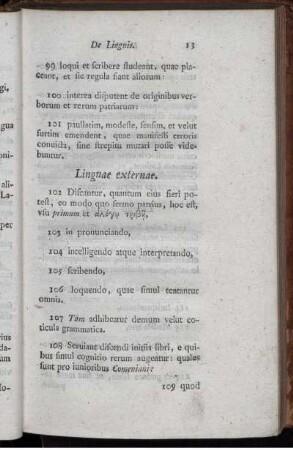 De Linguis. 13
99 loqui et scribere studeant, quae pla-
ceant, et sic regula fiant aliorum:
100 interea disputent de originibus ver-
borum et rerum patriarum:
101 paullatim, modeste, sensim, et velut
furtim emendent, quae manifesti erroris
conuicta, sine strepitu mutari posse vide-
buntur.
Linguae externae.
102 Discantur, quantum eius fieri po-
test, eo modo quo sermo patrius, hoc est,
vsu primum et ἀλόγῳ τριβῇ,
103 in pronunciando,
104 intelligendo atque interpretando,
105 scribendo,
106 loquendo, quae simul tentantur
omnia.
107 Tum adhibeatur demum velut co-
ticula grammatica.
108 Seruiant discendi initiis libri, e qui-
bus simul cognitio rerum augeatur: quales
sunt pro iunioribus Comeniani:
109 quod